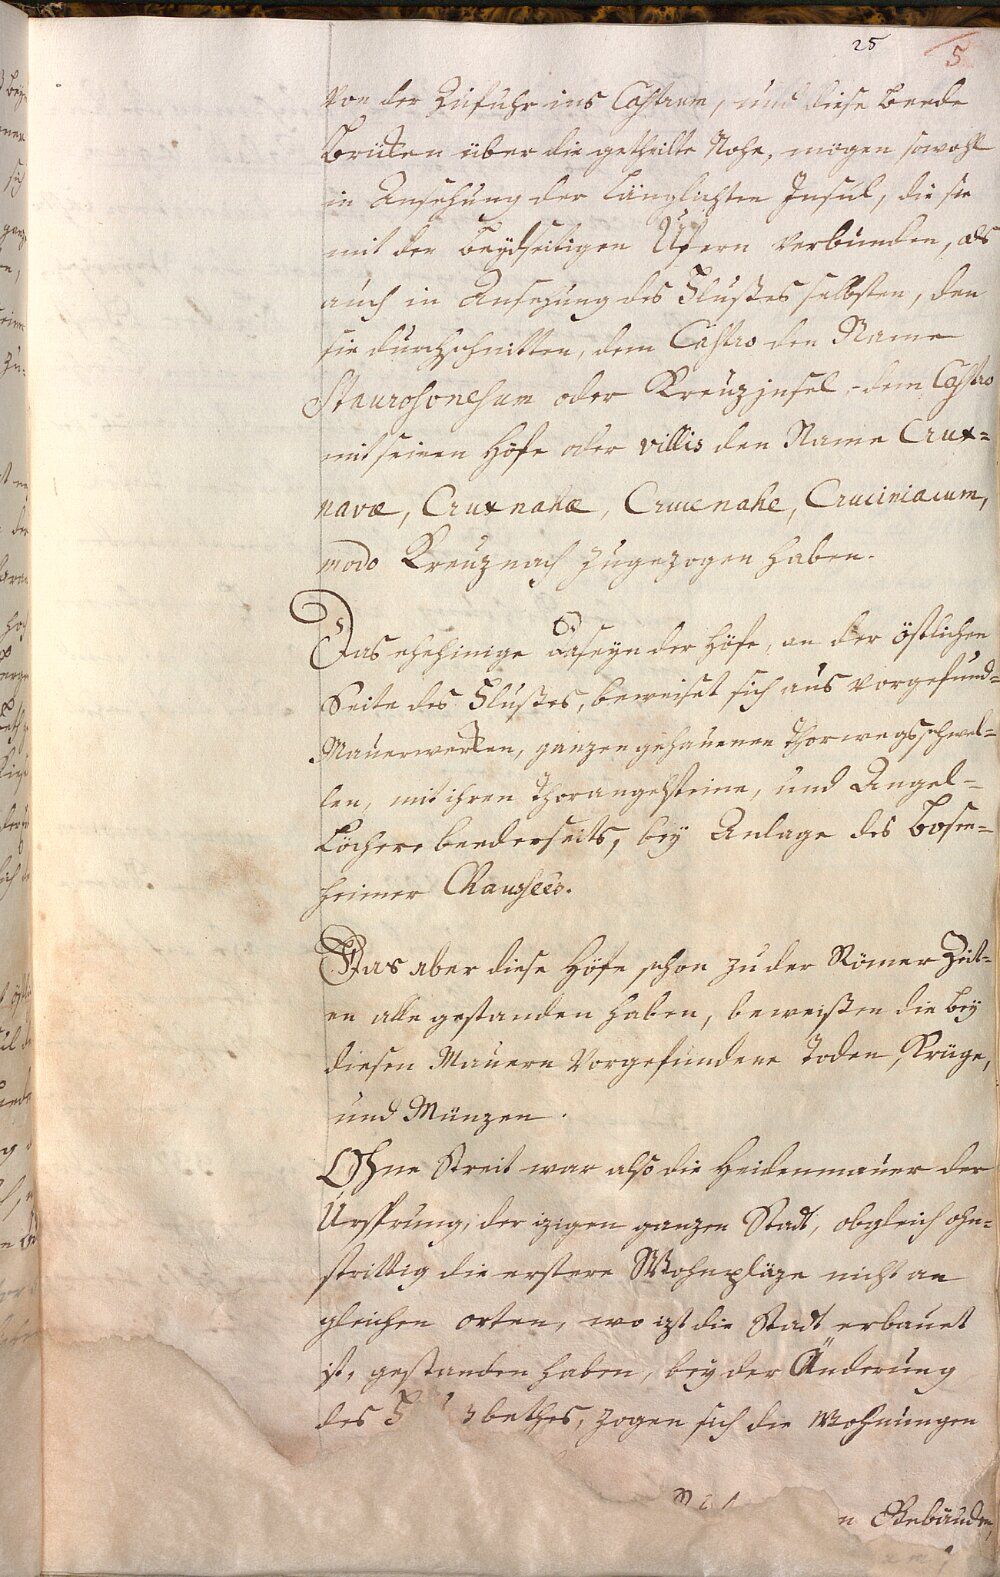 25 5
Von der Zufuhr ins Castrum, und diese beede
Brüken über die getheilte Nohe, mögen sowohl
in Ansehung der länglichten Insul, die sie
mit den beydseitigen Ufern verbunden, als
auch in Ansehung des Flußes selbsten, den
sie durchschnitten, dem Castro den Name
Stauroßonesum oder Kreuzinsel, dem Castro
mit seinen Höfe oder villis den Name Crux=
navæ, Cruxnahæ, Crucenahe, Cruciniacum,
modo Kreuznach zugezogen haben.
Das ehehinige Daseyn der Höfe, an der östlichen
Seite des Flußes, beweiset sich aus vorgefund=
Mauerwerken, ganzen gehauenen Thorwegsschwel=
len, mit ihren Thorangelsteine, und Angel=
Löchere beederseits, bey Anlage des Bosen=
heimer Chaussees.
Das aber diese Höfe schon zu der Römer Zeit=
en alle gestanden haben, beweißen die bey
diesen Mauern Vorgefundene Toden Krüge,
und Münzen.
Ohne Streit war also die Heidenmauer der
Ursprung, der izigen ganzen Stadt, obgleich ohn=
strittig die erstere Wohnpläze nicht an
gleichen orten, wo izt die Stadt erbauet
ist, gestanden haben, bey der Änderung
des F bethes, zogen sich die Wohnungen
n Gebäuden,